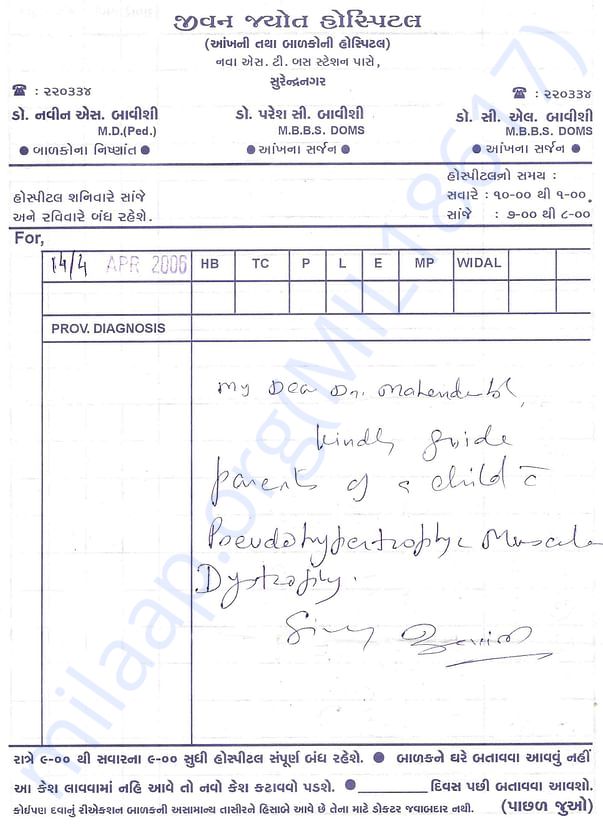 જીવન જ્યોત હોસ્પિટલ
(આંખની તથા બાળકોની હોસ્પિટલ)
નવા એસ. ટી. બસ સ્ટેશન પાસે,
સુરેન્દ્રનગર
☎ : ૨૨૦૩૩૪ ☎ : ૨૨૦૩૩૪
ડો. નવીન એસ. બાવીશી ડો. પરેશ સી. બાવીશી ડો. સી. એલ. બાવીશી
M.D.(Ped.) M.B.B.S. DOMS M.B.B.S. DOMS
● બાળકોના નિષ્ણાંત ● ● આંખના સર્જન ● ● આંખના સર્જન ●
હોસ્પીટલ શનિવારે સાંજે
અને રવિવારે બંધ રહેશે.
હોસ્પીટલનો સમય :
સવારે : ૧૦-૦૦ થી ૧-૦૦
સાંજે : ૭-૦૦ થી ૮-૦૦
For,
14/4 APR 2006 HB TC P L E MP WIDAL
PROV. DIAGNOSIS
My Dear Dr. Mahendra
kindly guide
parents of a child c̄
Pseudohypertrophic Muscular
Dystrophy.
milaap.org(MIL18617)
રાત્રે ૯-૦૦ થી સવારના ૯-૦૦ સુધી હોસ્પિટલ સંપૂર્ણ બંધ રહેશે. ● બાળકને ઘરે બતાવવા આવવું નહીં
આ કેશ લાવવામાં નહિ આવે તો નવો કેશ કઢાવવો પડશે. ●________ દિવસ પછી બતાવવા આવશો.
કોઈપણ દવાનું રીએક્શન બાળકની અસામાન્ય તાસીરને હિસાબે આવે છે તેના માટે ડોક્ટર જવાબદાર નથી. (પાછળ જુઓ)